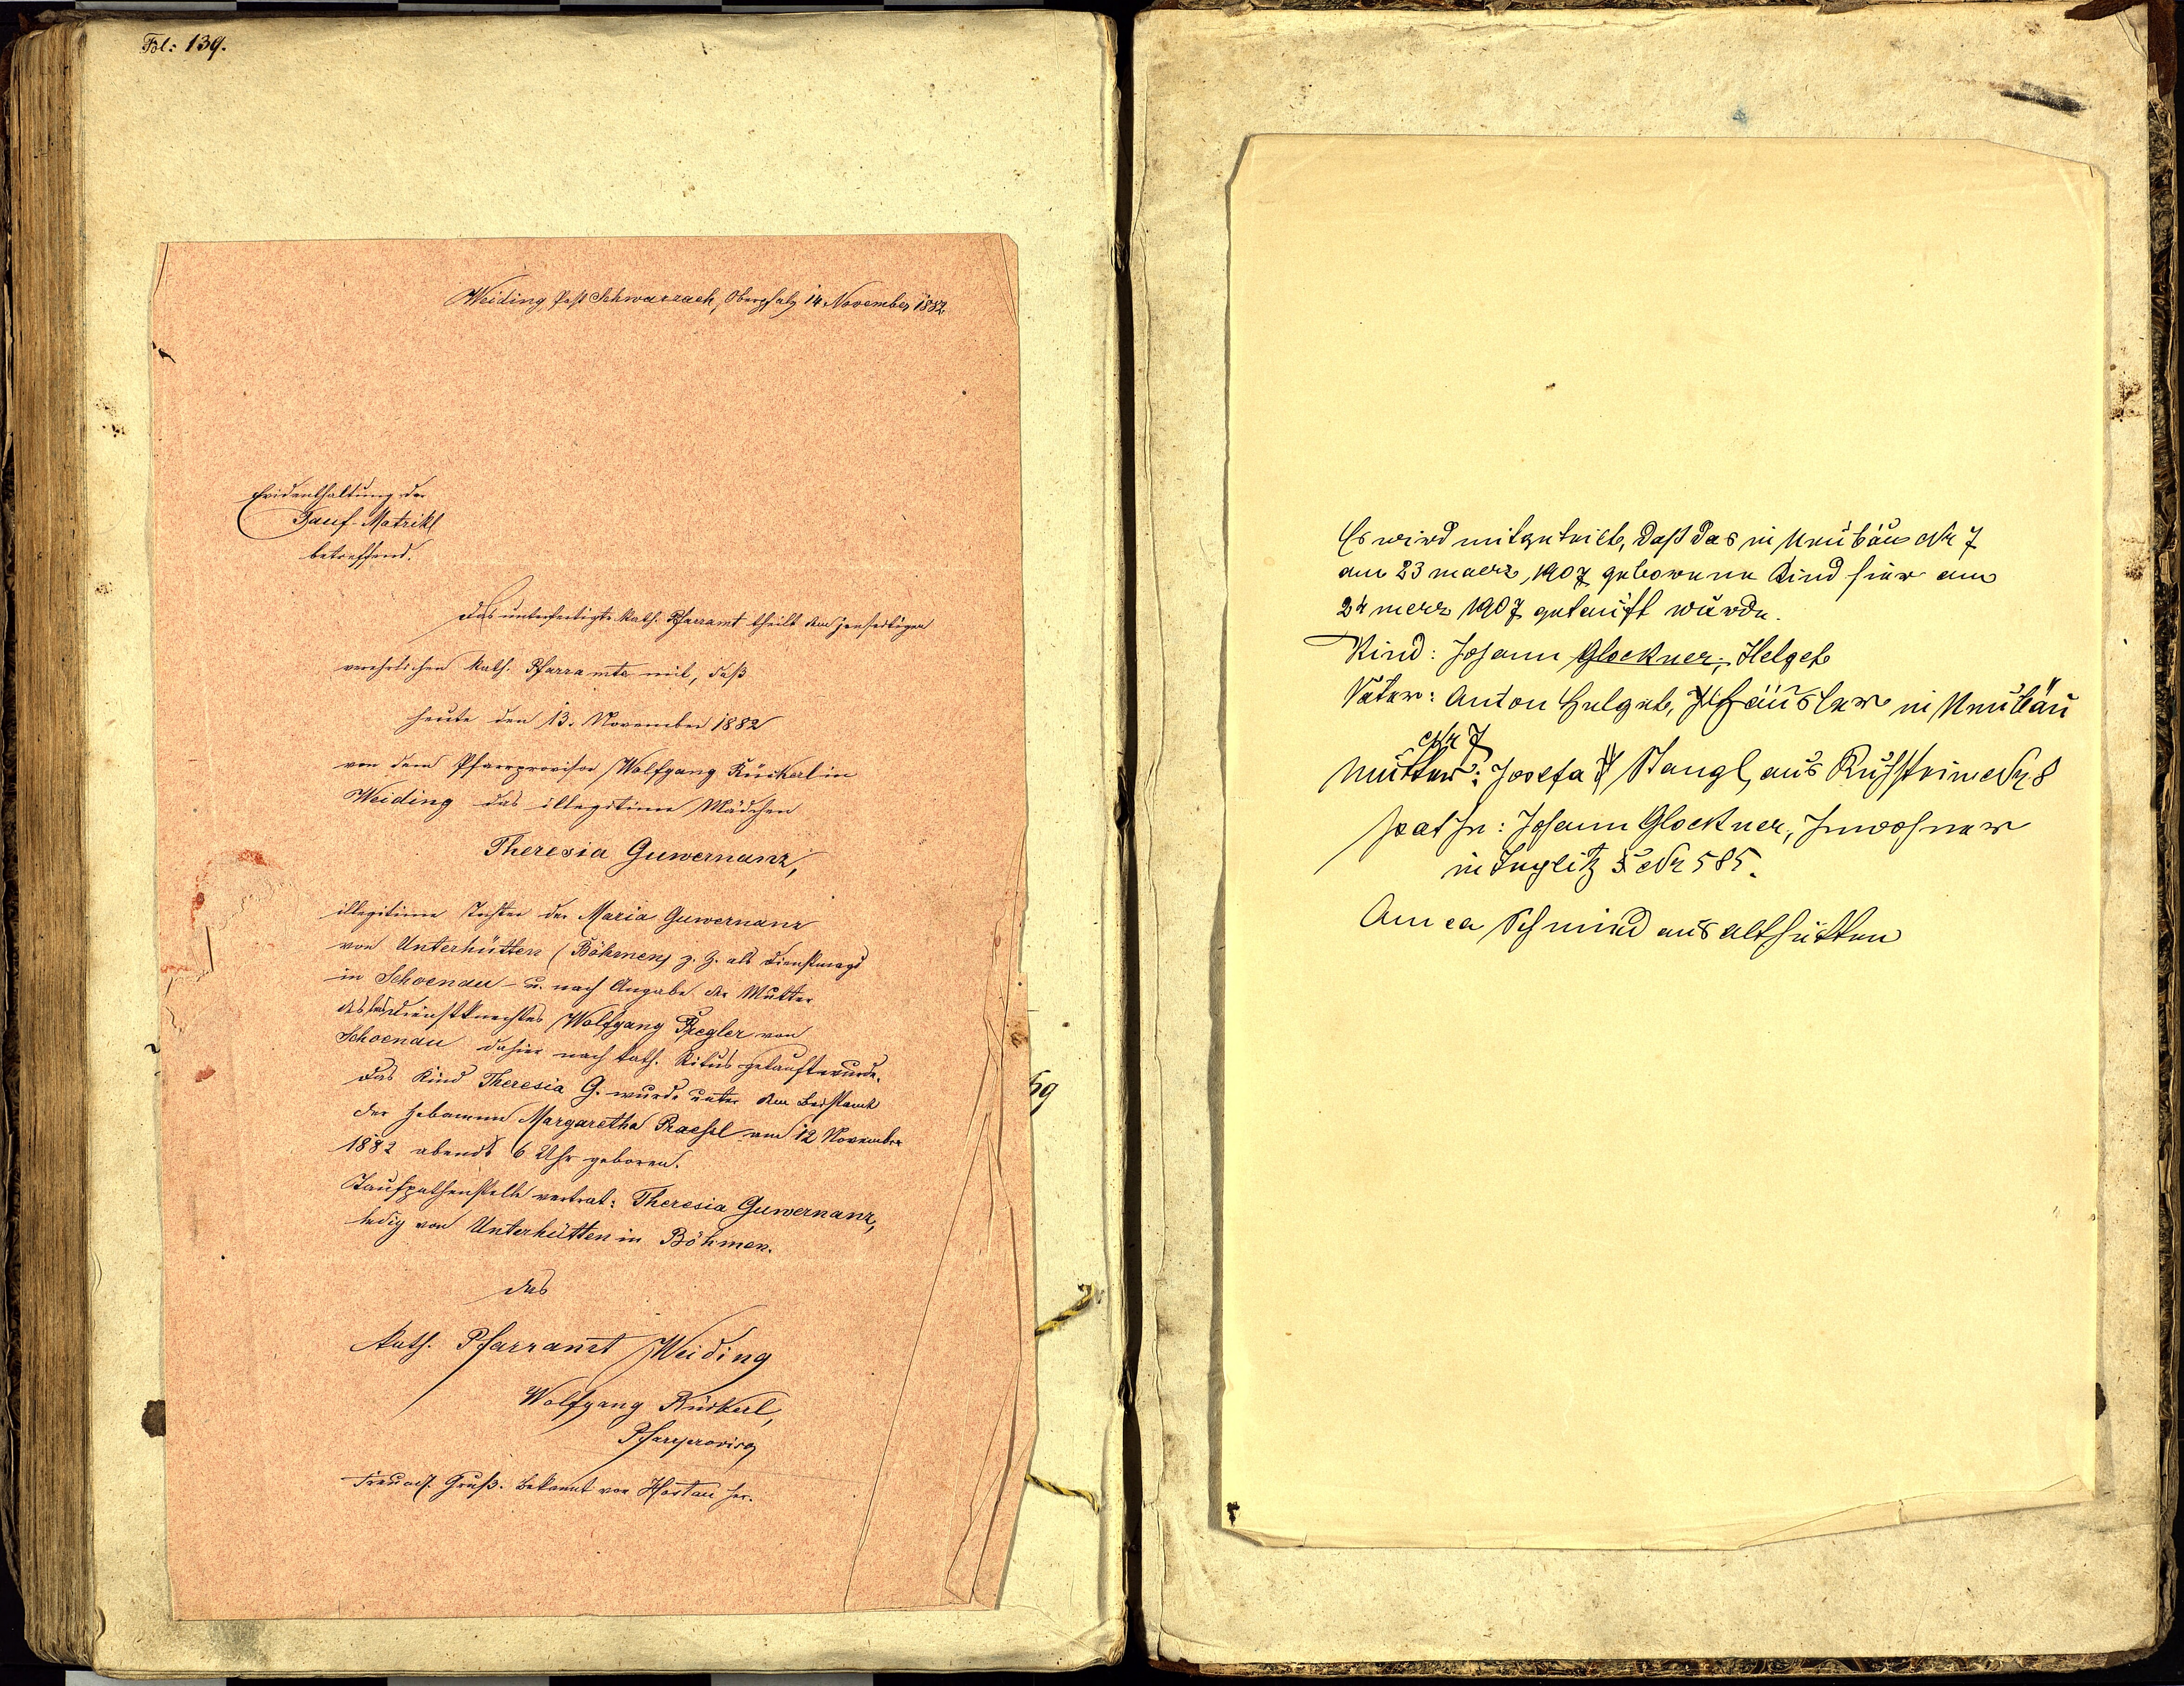 Fol: 139.
Weiding, Post Schwarzach, Oberpfalz 14. November 1882.
Evidenthaltung der
Tauf-Matrikl
betreffend.
Das unterfertigte kath. Pfarramt theilt dem jenseitigen
verehrlichen kath. Pfarramte mit, daß
heute den 13. November 1882
von dem Pfarrprovisor Wolfgang Rückerl in
Weiding das illegitime Mädchen
Theresia Guwernanz,
illegitime Tochter der Maria Guwernanz
von Unterhütten (Böhmen) z. Z. als Dienstmagd
in Schoenau – u. nach Angabe der Mutter
des Dienstknechtes Wolfgang Pregler von
Schoenau dahier nach kath. Ritus getauft wurde.
Das Kind Theresia G. wurde unter dem Beistand
der Hebamme Margaretha am 12 November
1882 abends 6 Uhr geboren.
Taufpathenstelle vertrat: Theresia Guwernanz,
ledig von Unterhütten in Böhmen.
Das
kath. Pfarramt Weiding
Wolfgang Rückerl,
Pfarrprovisor
Freundl. Gruß. Bekannt von Hostau her.
Es wird mitgeteilt, daß das in Neubäu Nr 7
am 23 maerz, 1907 geborene Kind hier am
24 merz 1907 getauft wurde.
Kind: Johann Glockner, Helget
Vater: Anton Helget, Häusler in Neubäu
Nr 7
Mutter: Josefa Stangl, aus Ruhstein Nr 8
pathe: Johann Glockner, Inwohner
in Nr 585.
Schmied aus althütten